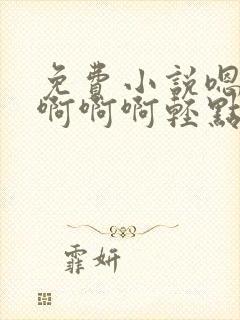 免費小説嗯
啊啊啊輕點
霏妍